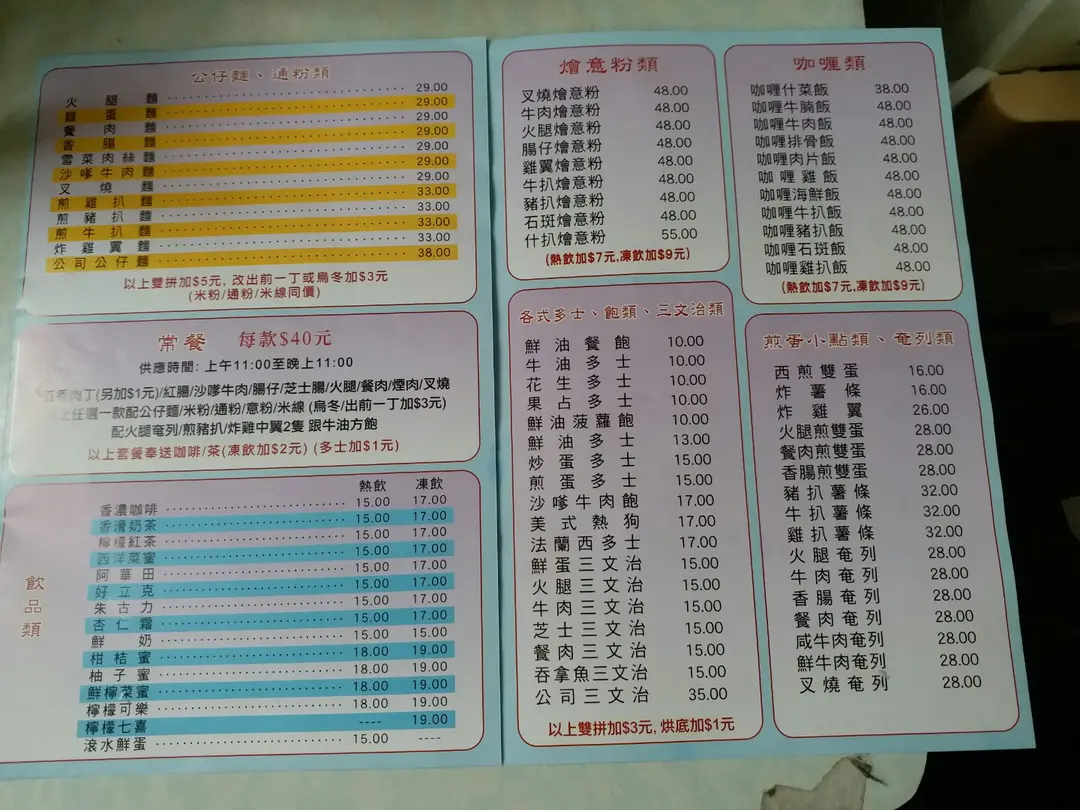 公仔麵、通粉類
火腿麵 29.00
雞蛋麵 29.00
餐肉麵 29.00
香腸麵 29.00
雪菜肉絲麵 29.00
沙嗲牛肉麵 29.00
叉燒麵 29.00
煎雞扒麵 33.00
煎豬扒麵 33.00
煎牛扒麵 33.00
炸雞翼麵 33.00
公司公仔麵 38.00
以上雙拼加$5元, 改出前一丁或烏冬加$3元
(米粉/通粉/米線同價)
常餐 每款$40元
供應時間: 上午11:00至晚上11:00
五香肉丁(另加$1元)/紅腸/沙嗲牛肉/腸仔/芝士腸/火腿/餐肉/煙肉/叉燒
以上任選一款配公仔麵/米粉/通粉/意粉/米線 (烏冬/出前一丁加$3元)
配火腿奄列/煎豬扒/炸雞中翼2隻 跟牛油方飽
以上套餐奉送咖啡/茶(凍飲加$2元) (多士加$1元)
飲品類
熱飲 凍飲
香濃咖啡 15.00 17.00
香滑奶茶 15.00 17.00
檸檬紅茶 15.00 17.00
西洋菜蜜 15.00 17.00
阿華田 15.00 17.00
好立克 15.00 17.00
朱古力 15.00 17.00
杏仁霜 15.00 17.00
鮮奶 15.00 15.00
柑桔蜜 18.00 19.00
柚子蜜 18.00 19.00
鮮檸菜蜜 18.00 19.00
檸檬可樂 18.00 19.00
檸檬七喜 ---- 19.00
滾水鮮蛋 15.00 ----
燴意粉類
叉燒燴意粉 48.00
牛肉燴意粉 48.00
火腿燴意粉 48.00
腸仔燴意粉 48.00
雞翼燴意粉 48.00
牛扒燴意粉 48.00
豬扒燴意粉 48.00
石斑燴意粉 48.00
什扒燴意粉 55.00
(熱飲加$7元,凍飲加$9元)
咖喱類
咖喱什菜飯 38.00
咖喱牛腩飯 48.00
咖喱牛肉飯 48.00
咖喱排骨飯 48.00
咖喱肉片飯 48.00
咖喱雞飯 48.00
咖喱海鮮飯 48.00
咖喱牛扒飯 48.00
咖喱豬扒飯 48.00
咖喱石斑飯 48.00
咖喱雞扒飯 48.00
(熱飲加$7元,凍飲加$9元)
各式多士、飽類、三文治類
鮮油餐飽 10.00
牛油多士 10.00
花生多士 10.00
果占多士 10.00
鮮油菠蘿飽 10.00
鮮油多士 13.00
炒蛋多士 15.00
煎蛋多士 15.00
沙嗲牛肉飽 17.00
美式熱狗 17.00
法蘭西多士 17.00
鮮蛋三文治 15.00
火腿三文治 15.00
牛肉三文治 15.00
芝士三文治 15.00
餐肉三文治 15.00
吞拿魚三文治 15.00
公司三文治 35.00
以上雙拼加$3元, 烘底加$1元
煎蛋小點類、奄列類
西煎雙蛋 16.00
炸薯條 16.00
炸雞翼 26.00
火腿煎雙蛋 28.00
餐肉煎雙蛋 28.00
香腸煎雙蛋 28.00
豬扒薯條 32.00
牛扒薯條 32.00
雞扒薯條 32.00
火腿奄列 28.00
牛肉奄列 28.00
香腸奄列 28.00
餐肉奄列 28.00
咸牛肉奄列 28.00
鮮牛肉奄列 28.00
叉燒奄列 28.00